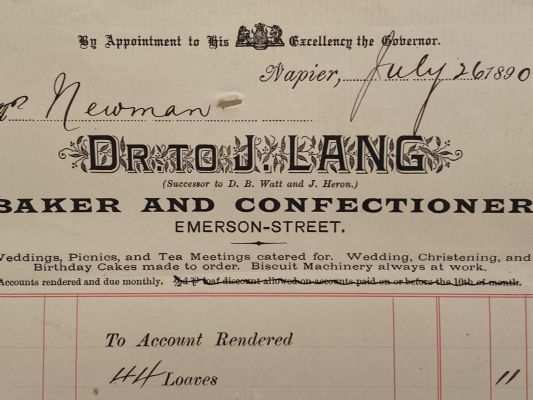 By Appointment to His Excellency the Governor.
Napier, July 26 1890
Newman
DR. TO J. LANG
(Successor to D. B. Watt and J. Heron.)
BAKER AND CONFECTIONER
EMERSON-STREET.
Weddings, Picnics, and Tea Meetings catered for. Wedding, Christening, and
Birthday Cakes made to order. Biscuit Machinery always at work.
Accounts rendered and due monthly. ½d P loaf discount allowed on accounts paid on or before the 10th of month.
To Account Rendered
44 Loaves 11